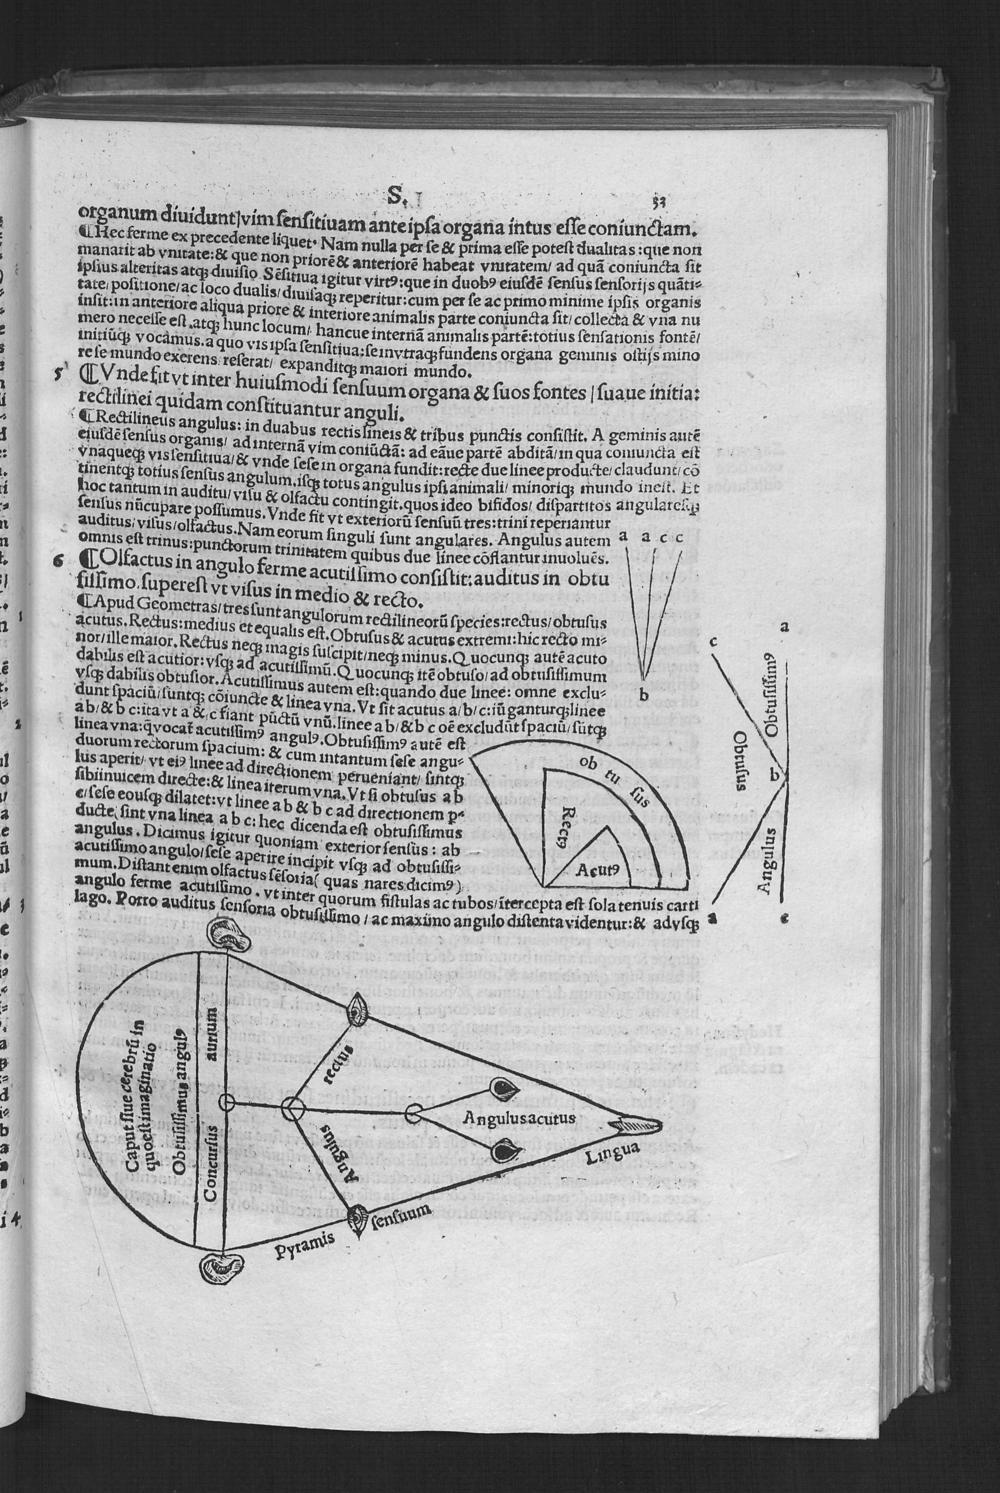 S.
33
organum diuidunt/vim sensitiuam ante ipsa organa intus esse coniunctam.
¶Hec ferme ex precedente liquet. Nam nulla per se & prima esse potest dualitas: que non
manarit ab vnitate: & que non priorē & anteriorē habeat vnitatem/ ad quā coniuncta sit
ipsius alteritas atqꝫ diuisio. Sēsitiua igitur virtꝰ: que in duobꝰ eiusdē sensus sensorijs quāti⸗
tate/positione/ac loco dualis/diuisaqꝫ reperitur: cum per se ac primo minime ipsis organis
insit: in anteriore aliqua priore & interiore animalis parte coniuncta sit/collecta & vna nu
mero necesse est. atqꝫ hunc locum/ hancue internā animalis partē: totius sensationis fontē/
initiūqꝫ vocamus. a quo vis ipsa sensitiua: se in vtraqꝫ fundens organa geminis ostijs mino
re se mundo exerens reserat/ expanditqꝫ maiori mundo.
5 ¶Vnde fit vt inter huiusmodi sensuum organa & suos fontes/suaue initia:
rectilinei quidam constituantur anguli.
¶Rectilineus angulus: in duabus rectis lineis & tribus punctis consistit. A geminis autē
eiusdē sensus organis/ ad internā vim coniūctā: ad eāue partē abditā/in qua coniuncta est
vnaqueqꝫ vis sensitiua/& vnde sese in organa fundit: recte due linee producte/claudunt/cō
tinentqꝫ totius sensus angulum. isqꝫ totus angulus ipsi animali/ minoriqꝫ mundo inest. Et
hoc tantum in auditu/visu & olfactu contingit. quos ideo bifidos/ dispartitos angularesqꝫ
sensus nūcupare possumus. Vnde fit vt exteriorū sensuū tres: trini reperiantur
auditus/visus/olfactus. Nam eorum singuli sunt angulares. Angulus autem
omnis est trinus: punctorum trinitatem quibus due linee cōflantur inuoluēs.
6 ¶Olfactus in angulo ferme acutissimo consistit: auditus in obtu
sissimo. superest vt visus in medio & recto.
¶Apud Geometras/tres sunt angulorum rectilineorū species: rectus/obtusus
acutus. Rectus: medius et equalis est. Obtusus & acutus extremi: hic recto mi⸗
nor/ille maior. Rectus neqꝫ magis suscipit/neqꝫ minus. Quocunqꝫ autē acuto
dabilis est acutior: vsqꝫ ad acutissimū. Quocunqꝫ itē obtuso/ad obtusissimum
vsqꝫ dabilis obtusior. Acutissimus autem est: quando due linee: omne exclu⸗
dunt spaciū/suntqꝫ cōiuncte & linea vna. Vt sit acutus a/b/c: iūganturqꝫ linee
ab/& bc: ita vt a & c fiant pūctū vnū. linee ab/& bc oē excludūt spaciū/sūtqꝫ
linea vna: qvocat acutissimꝰ angulꝰ. Obtusissimꝰ autē est
duorum rectorum spacium: & cum intantum sese angu⸗
lus aperit/ vt eiꝰ linee ad directionem perueniant/ sintqꝫ
sibiinuicem directe: & linea iterum vna. Vt si obtusus ab
c/sese eousqꝫ dilatet: vt linee ab & bc ad directionem p
ducte/ sint vna linea abc: hec dicenda est obtusissimus
angulus. Dicimus igitur quoniam exterior sensus: ab
acutissimo angulo/sese aperire incipit vsqꝫ ad obtusissi⸗
mum. Distant enim olfactus sēsoria( quas nares dicimꝰ)
angulo ferme acutissimo. vt inter quorum fistulas ac tubos/ītercepta est sola tenuis carti
lago. Porro auditus sensoria obtusissimo/ac maximo angulo distenta videntur: & advsqꝫ
a a c c
b
c
a
Obtusissimꝰ
Obtusus
b
Angulus
a
c
ob tu sus
Rectꝰ
Acutꝰ
Caput siue cerebrū in
quo est imaginatio
Obtusissimus angulꝰ
Concursus aurium
rectus
Angulus
Angulus acutus
Lingua
Pyramis sensuum